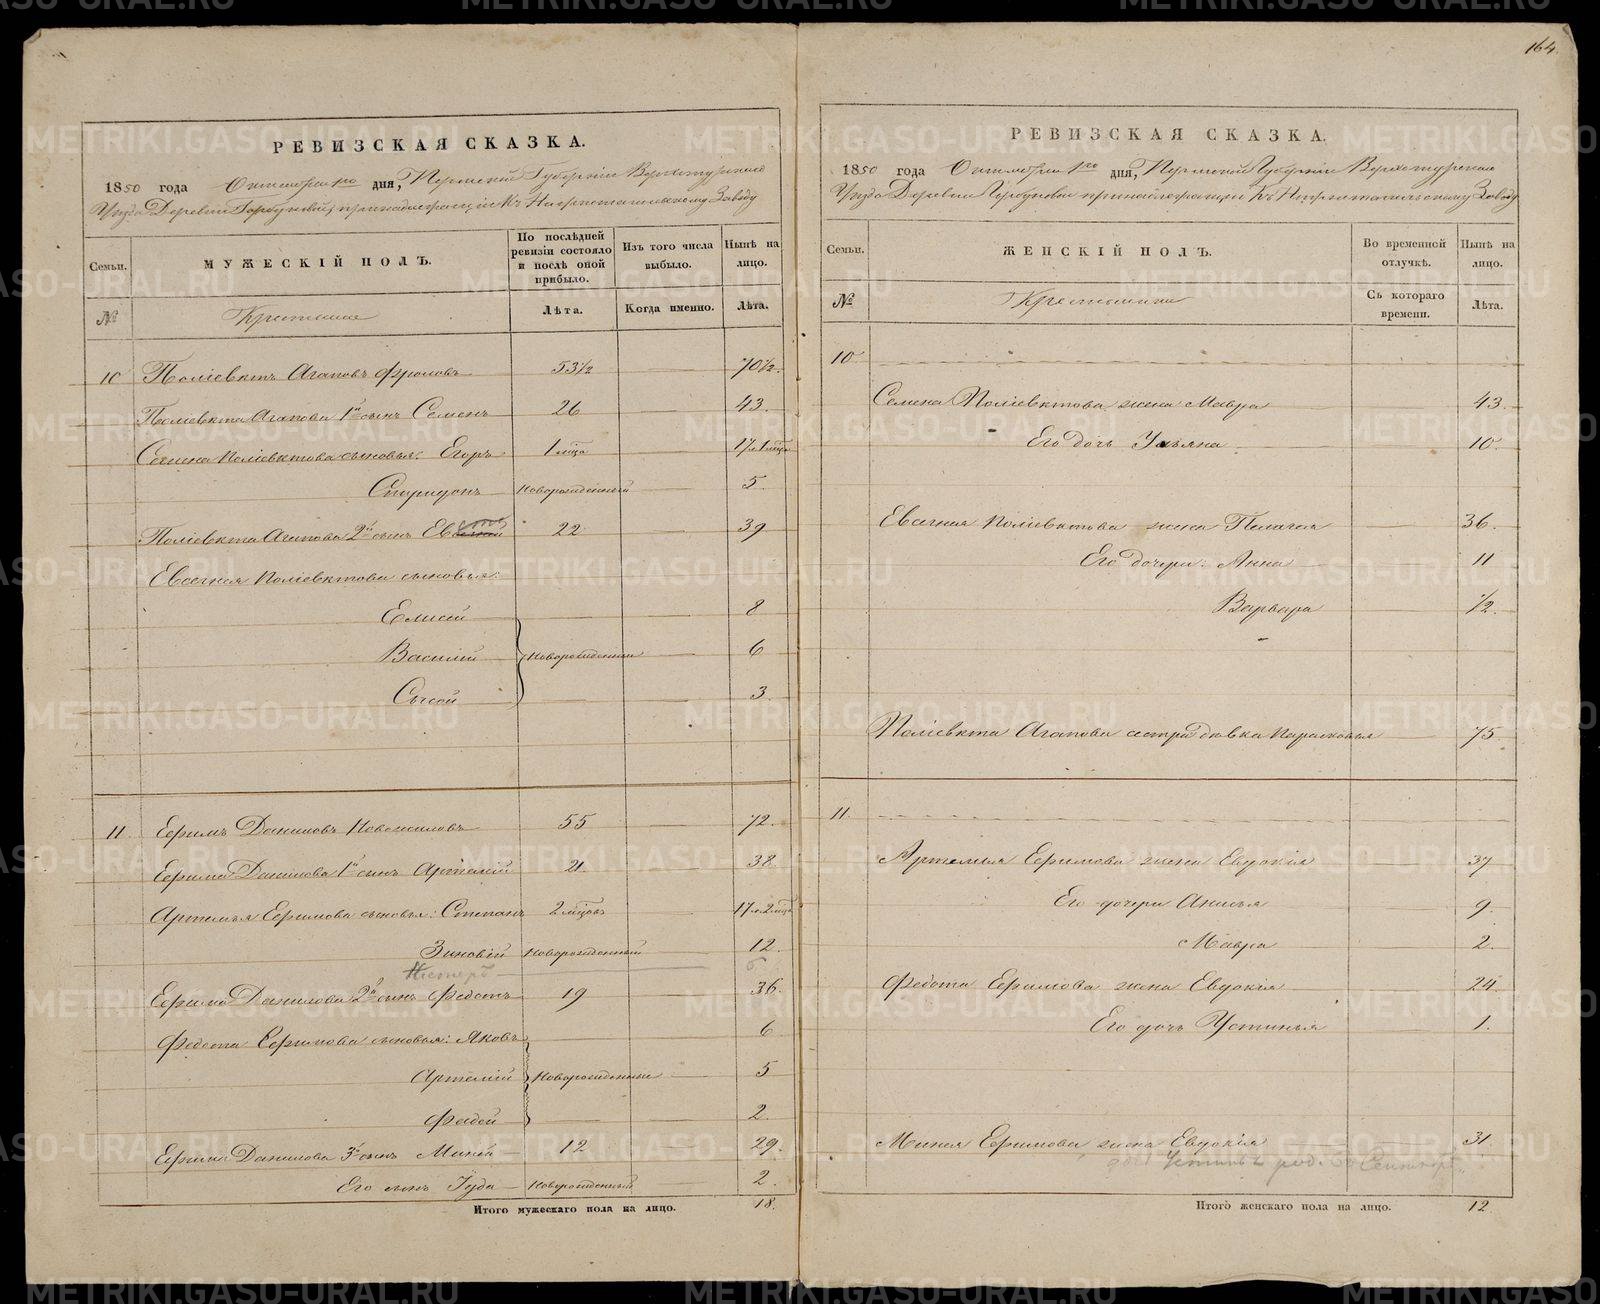 164.
РЕВИЗСКАЯ СКАЗКА.
1850 года Октября 1го дня, Пермской Губернiи Верхотурскаго
Уѣзда Деревни Горбуновой, принадлежащей Къ Нижнетагильскому Заводу
Семьи. МУЖЕСКІЙ ПОЛЪ. По послѣдней ревизіи состояло и послѣ оной прибыло. Изъ того числа выбыло. Нынѣ на лицо.
№ Крестьяне Лѣта. Когда именно. Лѣта.
10 Поліевктъ Агаповъ Фроловъ 53½ 70½.
Поліевкта Агапова 1й сынъ Семенъ 26 43.
Семена Поліевктова сыновья: Егоръ 1 мѣсца 17 л. 1 мѣсца
Спиридонъ Новорожденный 5.
Поліевкта Агапова 2й сынъ 22 39
Евсегнея Поліевктова сыновья:
Елисей 8
Василій Новорожденныи 6
Сысой 3.
11 Ефимъ Даниловъ Новожиловъ 55 72.
Ефима Данилова 1й сынъ Артемій 21. 38.
Артемья Ефимова сыновья: Степанъ 2 мѣсцовъ 17 л. 2 мѣсц
Зиновій Новорожденный 12.
Нестеръ 6
Ефима Данилова 2й сынъ Федотъ 19 36.
Федота Ефимова сыновья: Яковъ 6
Артемій Новорожденныи 5
Фадей 2.
Ефима Данилова 3й сынъ Миней 12 29.
Его сынъ Іуда Новорожденный 2.
Итого мужескаго пола на лицо. 18.
РЕВИЗСКАЯ СКАЗКА.
1850 года Октября 1го дня, Пермской Губернiи Верхотурскаго
Уѣзда Деревни Горбуновой принадлежащей Къ Нижнетагильскому Заводу
Семьи. ЖЕНСКІЙ ПОЛЪ. Во временной отлучкѣ. Нынѣ на лицо.
№ Крестьянки Съ котораго времени. Лѣта.
10.
Семена Поліевктова жена Мавра 43.
Его дочь Ульяна 10.
Евсегнея Поліевктова жена Пелагея 36.
Его дочери: Анна 11
Варвара ½.
Поліевкта Агапова сестра дѣвка Парасковья 75.
11.
Артемья Ефимова жена Евдокія 37
Его дочери Анисья 9.
Мавра 2.
Федота Ефимова жена Евдокія 24.
Его дочь Устинья 1.
Минея Ефимова, жена Евдокія 31.
Итого женскаго пола на лицо. 12.
METRIKI.GASO-URAL.RU